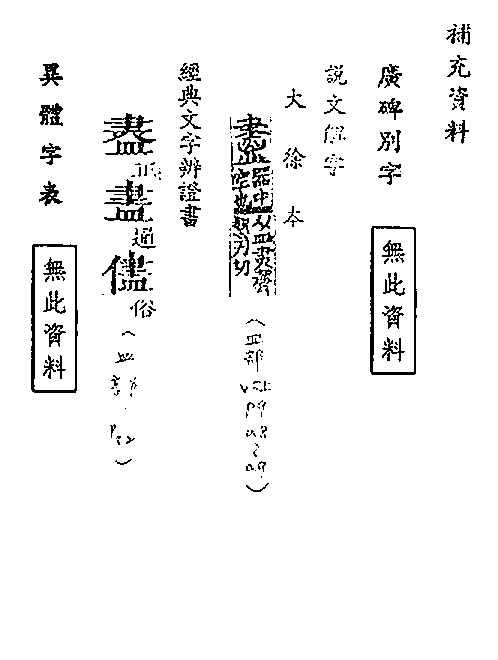 補充資料
廣碑別字
無此資料
說文解字
大徐本
盡 器中从皿㶳聲
空也慈刃切
(皿部
經典文字辨證書
盡正
盡通
儘俗
(皿部
P52)
異體字表
無此資料